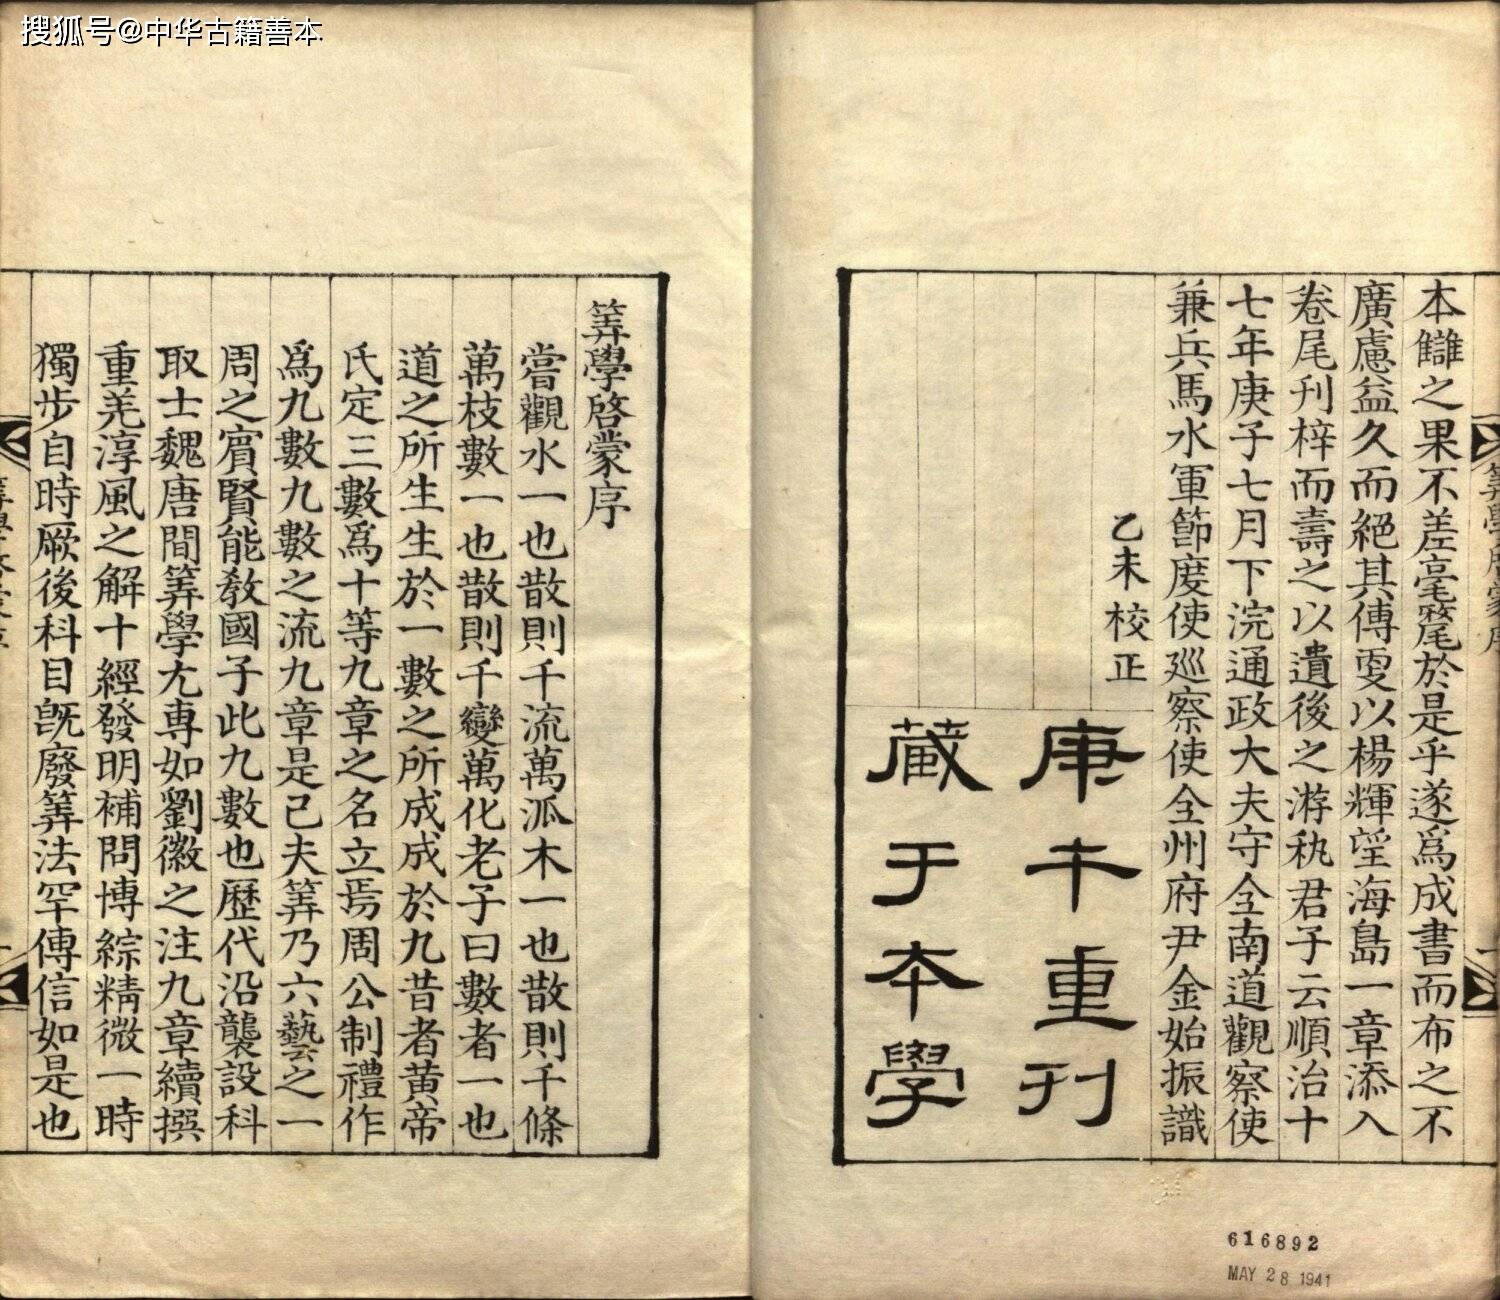 搜狐号@中华古籍善本
本讎之果不差毫氂於是乎遂爲成書而布之不
廣慮益久而絕其傳更以楊輝望海島一章添入
卷尾刊梓而壽之以遺後之游秇君子云順治十
七年庚子七月下浣通政大夫守全南道觀察使
兼兵馬水軍節度使廵察使全州府尹金始振識
乙未校正
庚午重刊
藏于本學
筭學啓蒙序
嘗觀水一也散則千流萬派木一也散則千條
萬枝數一也散則千變萬化老子曰數者一也
道之所生生於一數之所成成於九昔者黃帝
氏定三數爲十等九章之名立焉周公制禮作
爲九數九數之流九章是已夫筭乃六藝之一
周之賔賢能敎國子此九數也歷代沿襲設科
取士魏唐間筭學尤專如劉徽之注九章續撰
重羌淳風之解十經發明補問博綜精微一時
獨步自時厥後科目旣廢筭法罕傳信如是也
筭學啓蒙序
616892
MAY 28 1941